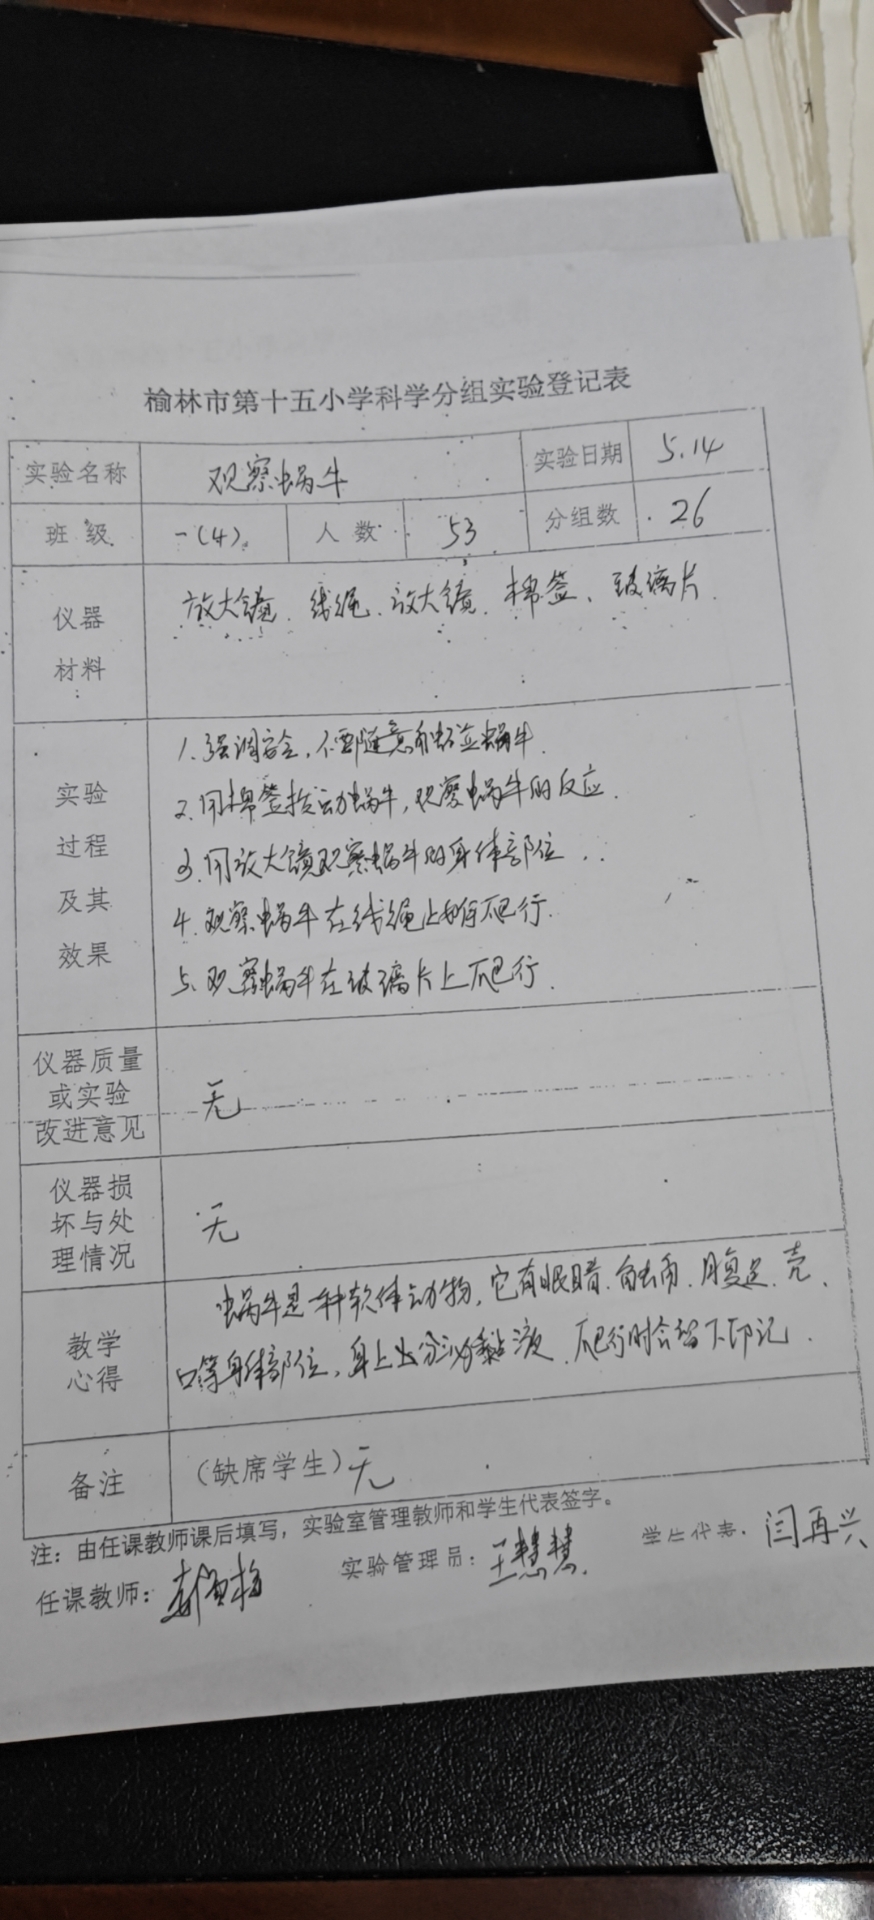 榆林市第十五小学科学分组实验登记表
实验名称 观察蜗牛 实验日期 5.14
班级 一(4) 人数 53 分组数 26
仪器材料 放大镜、线绳、放大镜、棉签、玻璃片
实验过程及其效果
1.强调安全,不要随意触碰蜗牛.
2.用棉签拨动蜗牛,观察蜗牛的反应.
3.用放大镜观察蜗牛的身体部位
4.观察蜗牛在线绳上爬行.
5.观察蜗牛在玻璃片上爬行.
仪器质量
或实验 无
改进意见
仪器损
坏与处 无
理情况
教学心得
蜗牛是一种软体动物,它有眼睛、触角、腹足、壳、
口等身体部位,身上分泌黏液,爬行时会留下印记.
备注 (缺席学生)无
注:由任课教师课后填写,实验室管理教师和学生代表签字。
任课教师: 实验管理员:王慧慧 学生代表: 闫再兴